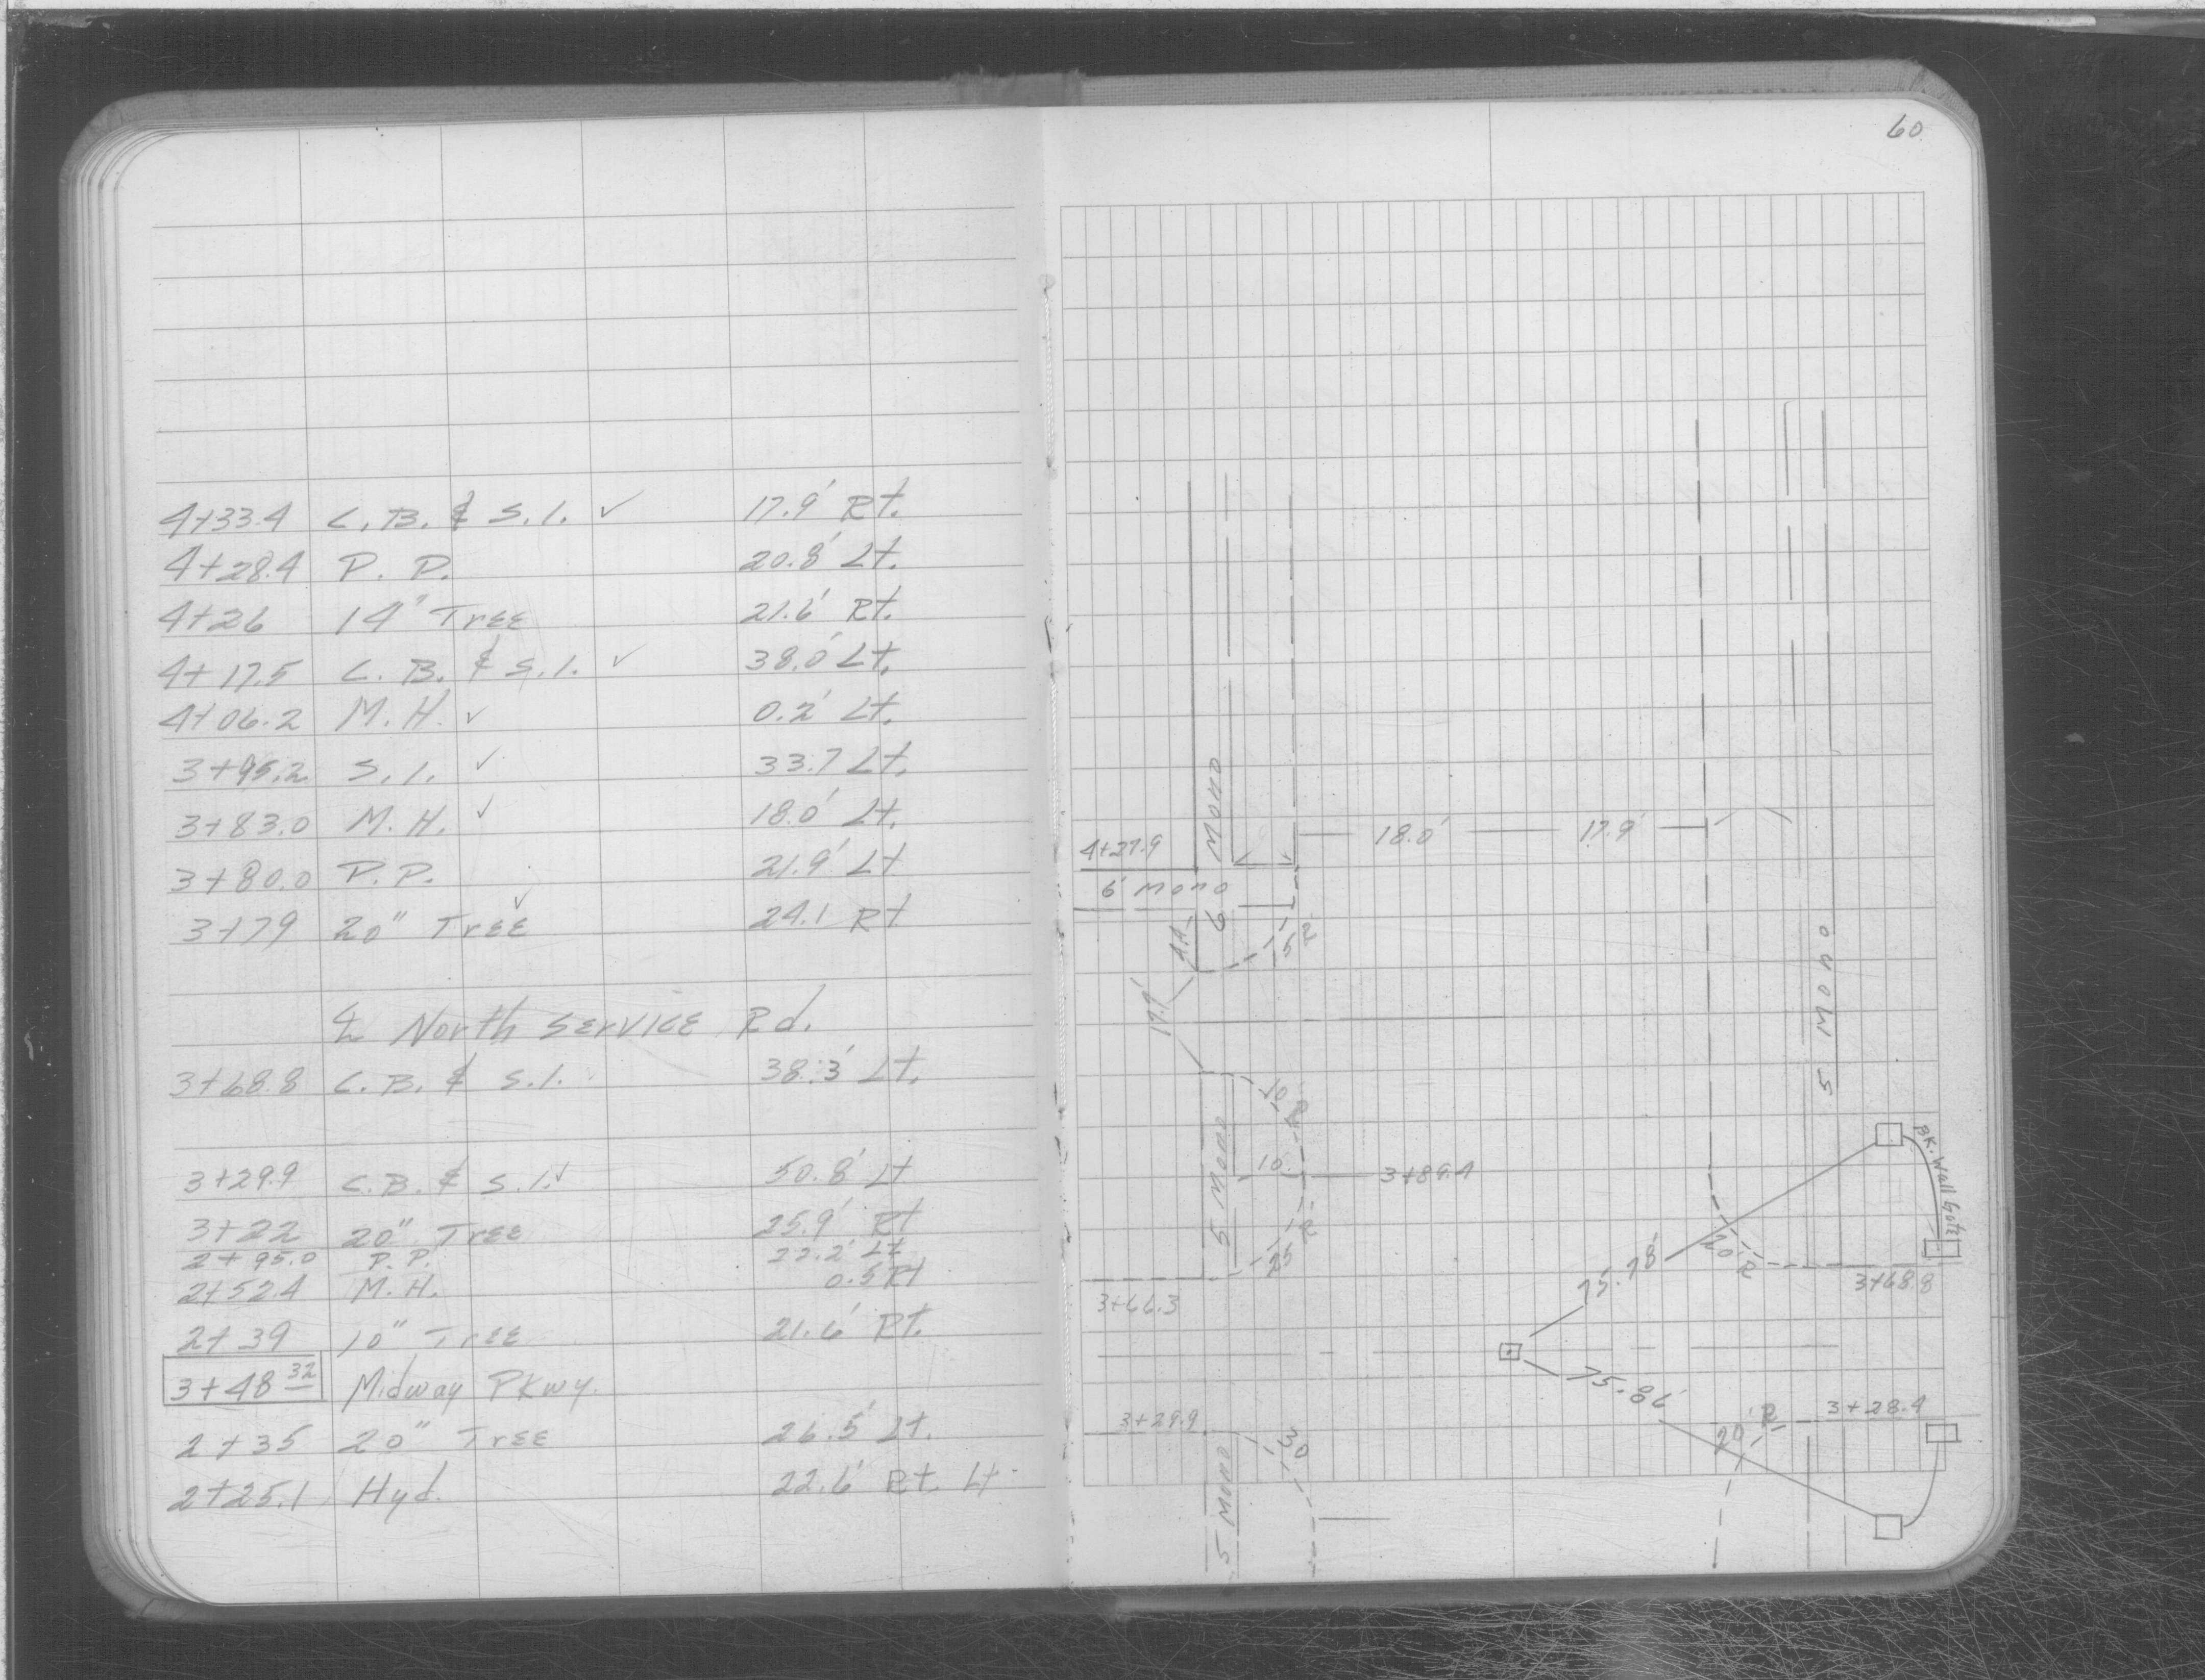 60
4+33.4 C.B. & S.I. ✓ 17.9' Rt.
4+28.4 P.P. 20.8' Lt.
4+26 14" Tree 21.6' Rt.
4+17.5 C.B. & S.I. ✓ 38.0' Lt.
4+06.2 M.H. ✓ 0.2' Lt.
3+95.2 S.I. ✓ 33.7 Lt.
3+83.0 M.H. ✓ 18.0' Lt.
3+80.0 P.P. 21.9' Lt
3+79 20" Tree ✓ 24.1 Rt
℄ North Service Rd.
3+68.8 C.B. & S.I. 38.3' Lt.
3+29.9 C.B. & S.I. ✓ 50.8' Lt
3+22 20" Tree 25.9' Rt
2+95.0 P.P. 22.2' Lt
2+52.4 M.H. 0.5 Rt
2+39 10" Tree 21.6' Rt.
3+48 32 Midway PKwy.
2+35 20" Tree 26.5' Lt.
2+25.1 Hyd. 22.6' Rt. Lt
6 Mono
4+27.9
18.0' 17.9'
6' mono
4.4
15 R
17.9'
5 Mono
10 R
5 Mono
10
3+89.4
25 R
3+66.3
Bk. Wall Gate
20' R
75.78'
3+68.8
75.86'
3+29.9
30
20' R
3+28.4
5 Mono